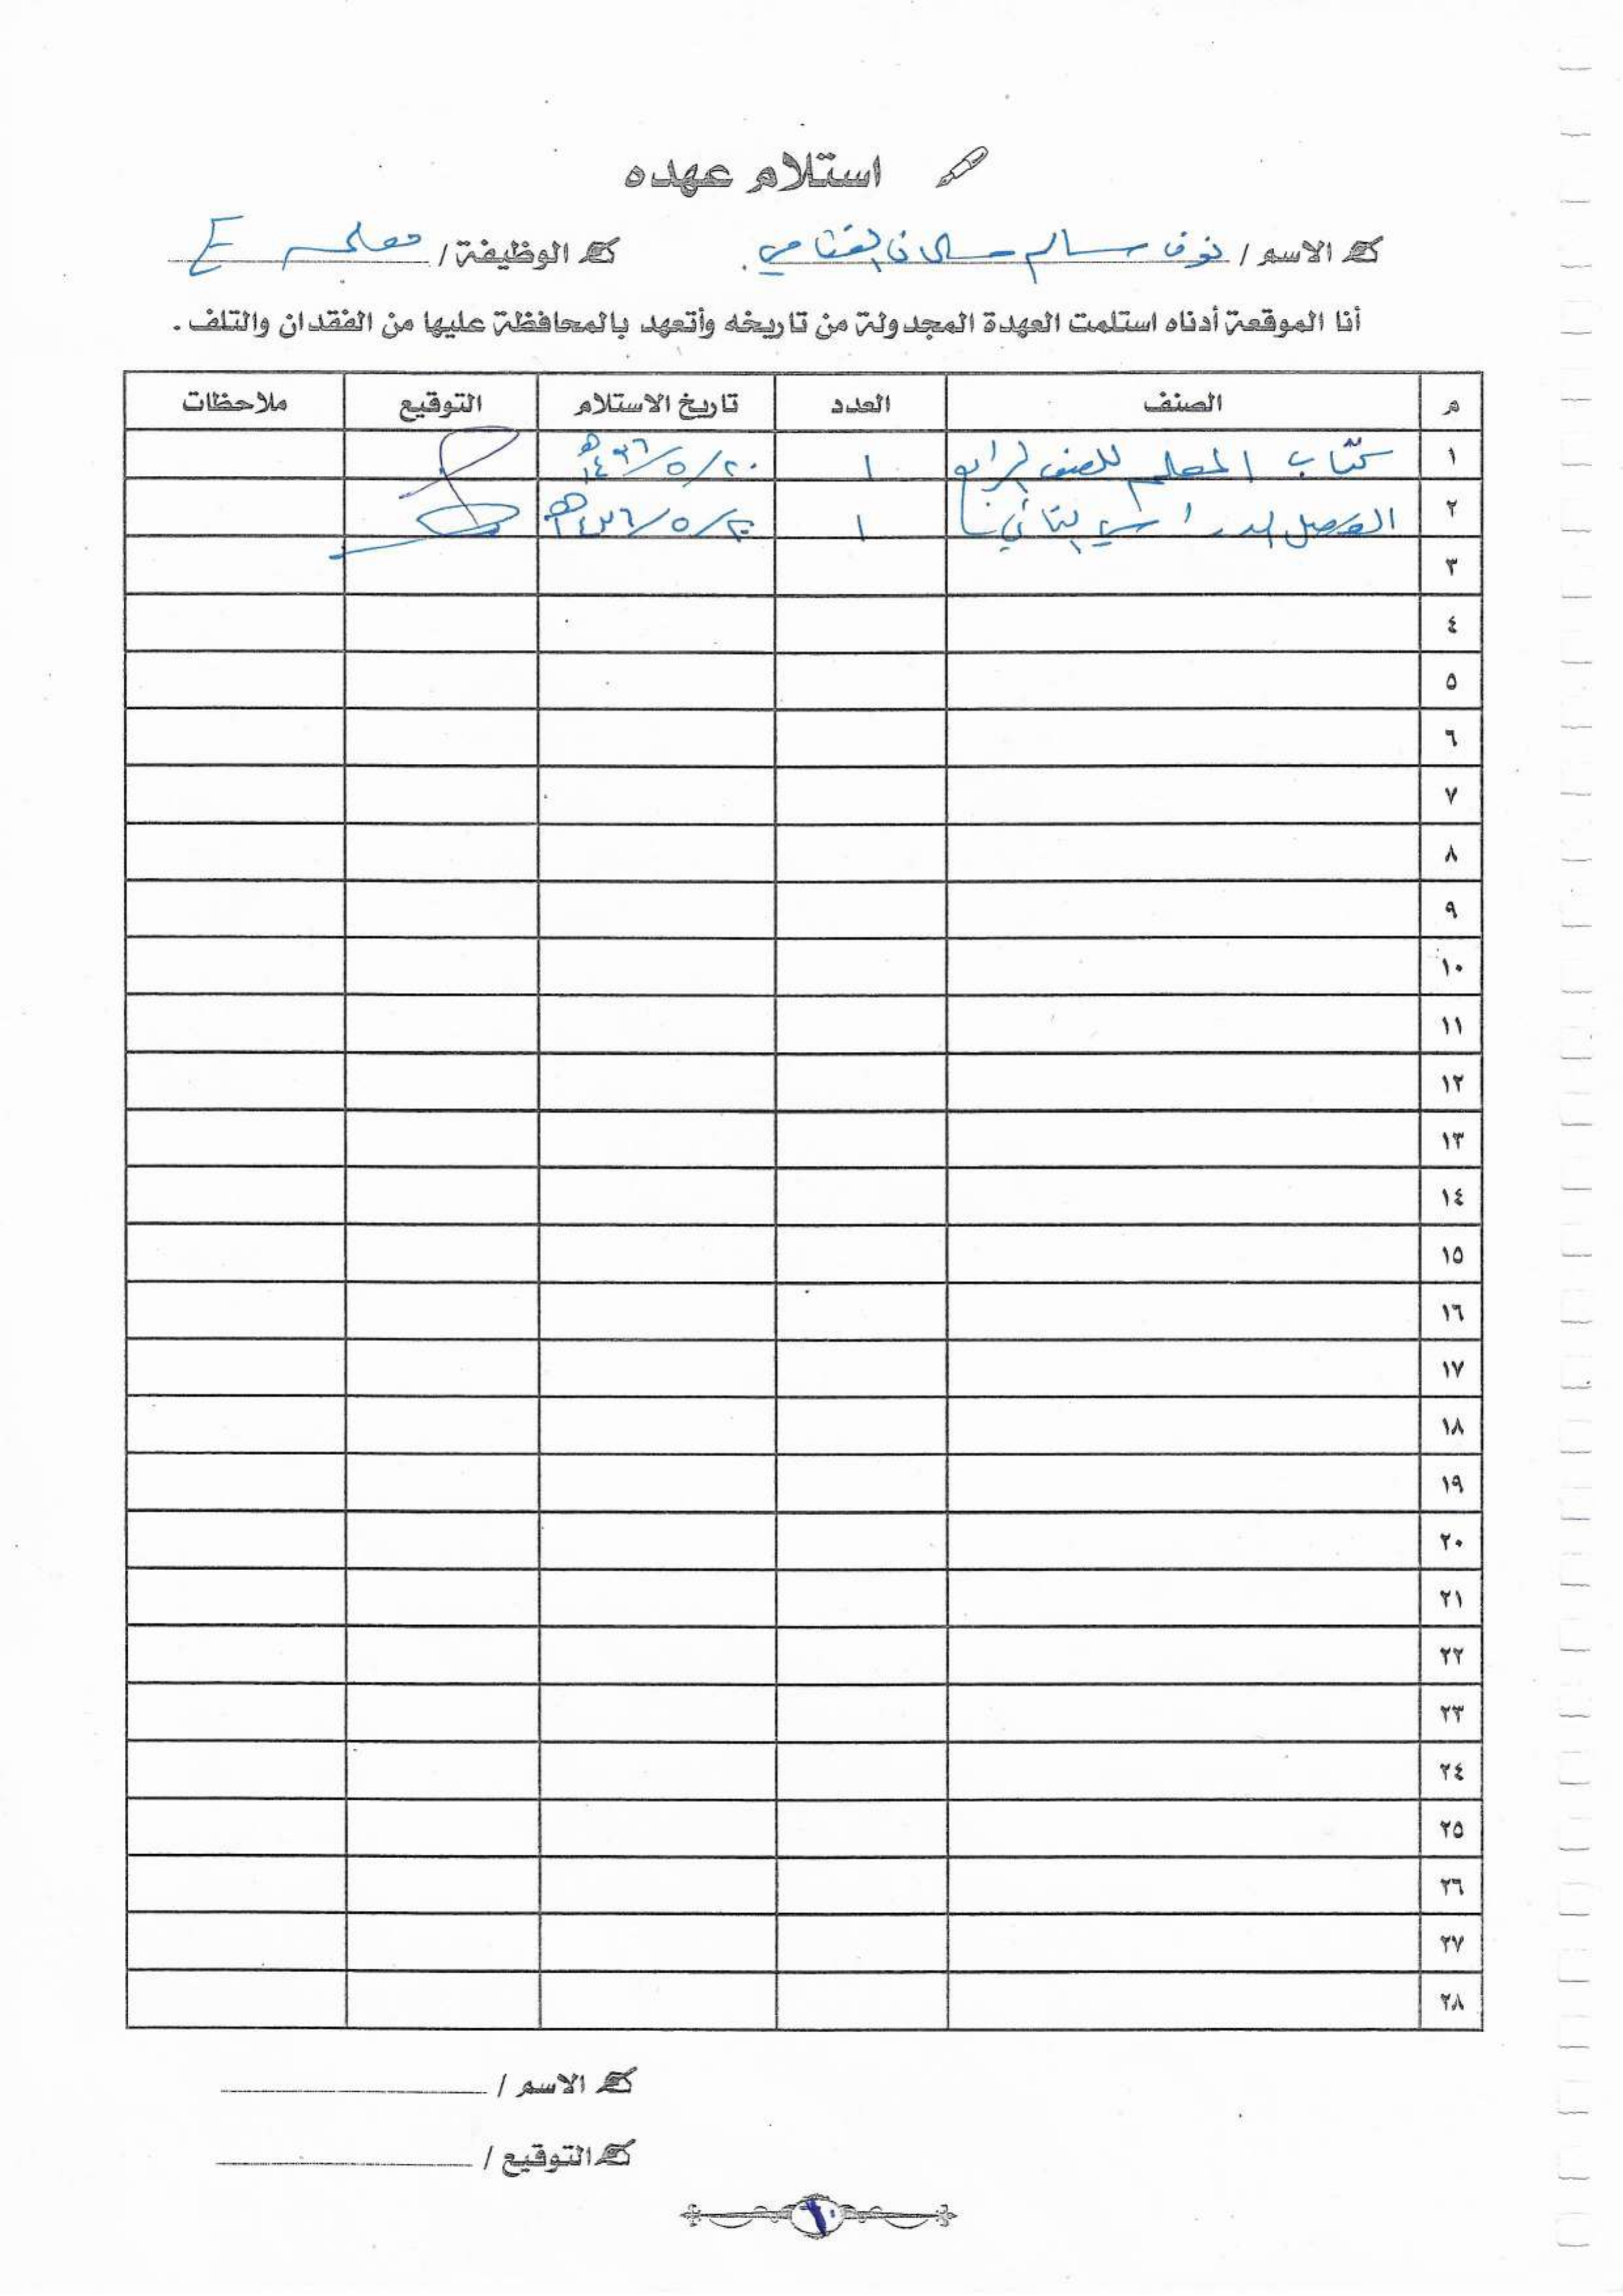 استلام عهده
الاسم / نوف سالم سالان القثامي. الوظيفة / معلمـ
أنا الموقعة أدناه استلمت العهدة المجدولة من تاريخه وأتعهد بالمحافظة عليها من الفقدان والتلف .
م الصنف العدد تاريخ الاستلام التوقيع ملاحظات
١ كتاب المعلم للصف الرابع ١ ٢٠/٥/١٤٣٦هـ
٢ الفصل الدراسي الثاني ١ ٢٠/٥/١٤٣٦هـ
٣
٤
٥
٦
٧
٨
٩
١٠
١١
١٢
١٣
١٤
١٥
١٦
١٧
١٨
١٩
٢٠
٢١
٢٢
٢٣
٢٤
٢٥
٢٦
٢٧
٢٨
الاسم /
التوقيع /